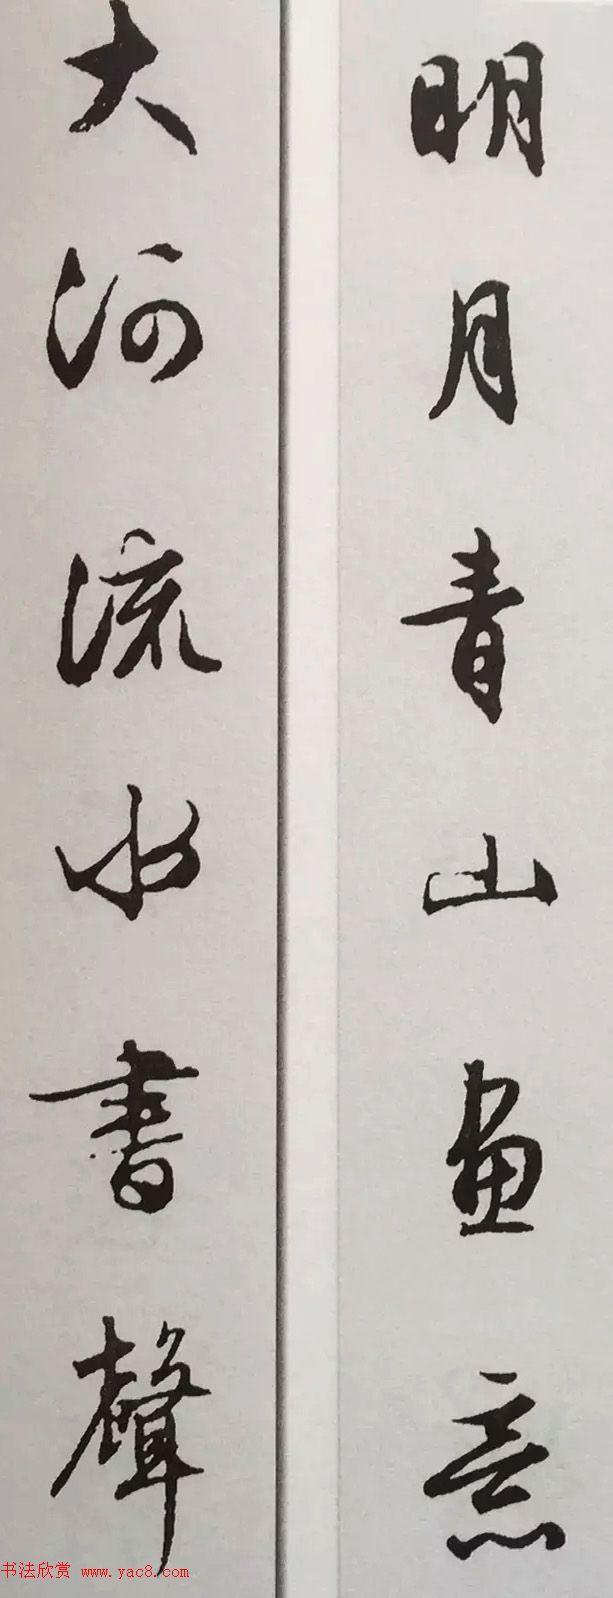 明月青山畫意
大河流水書聲
书法欣赏 www.yac8.com